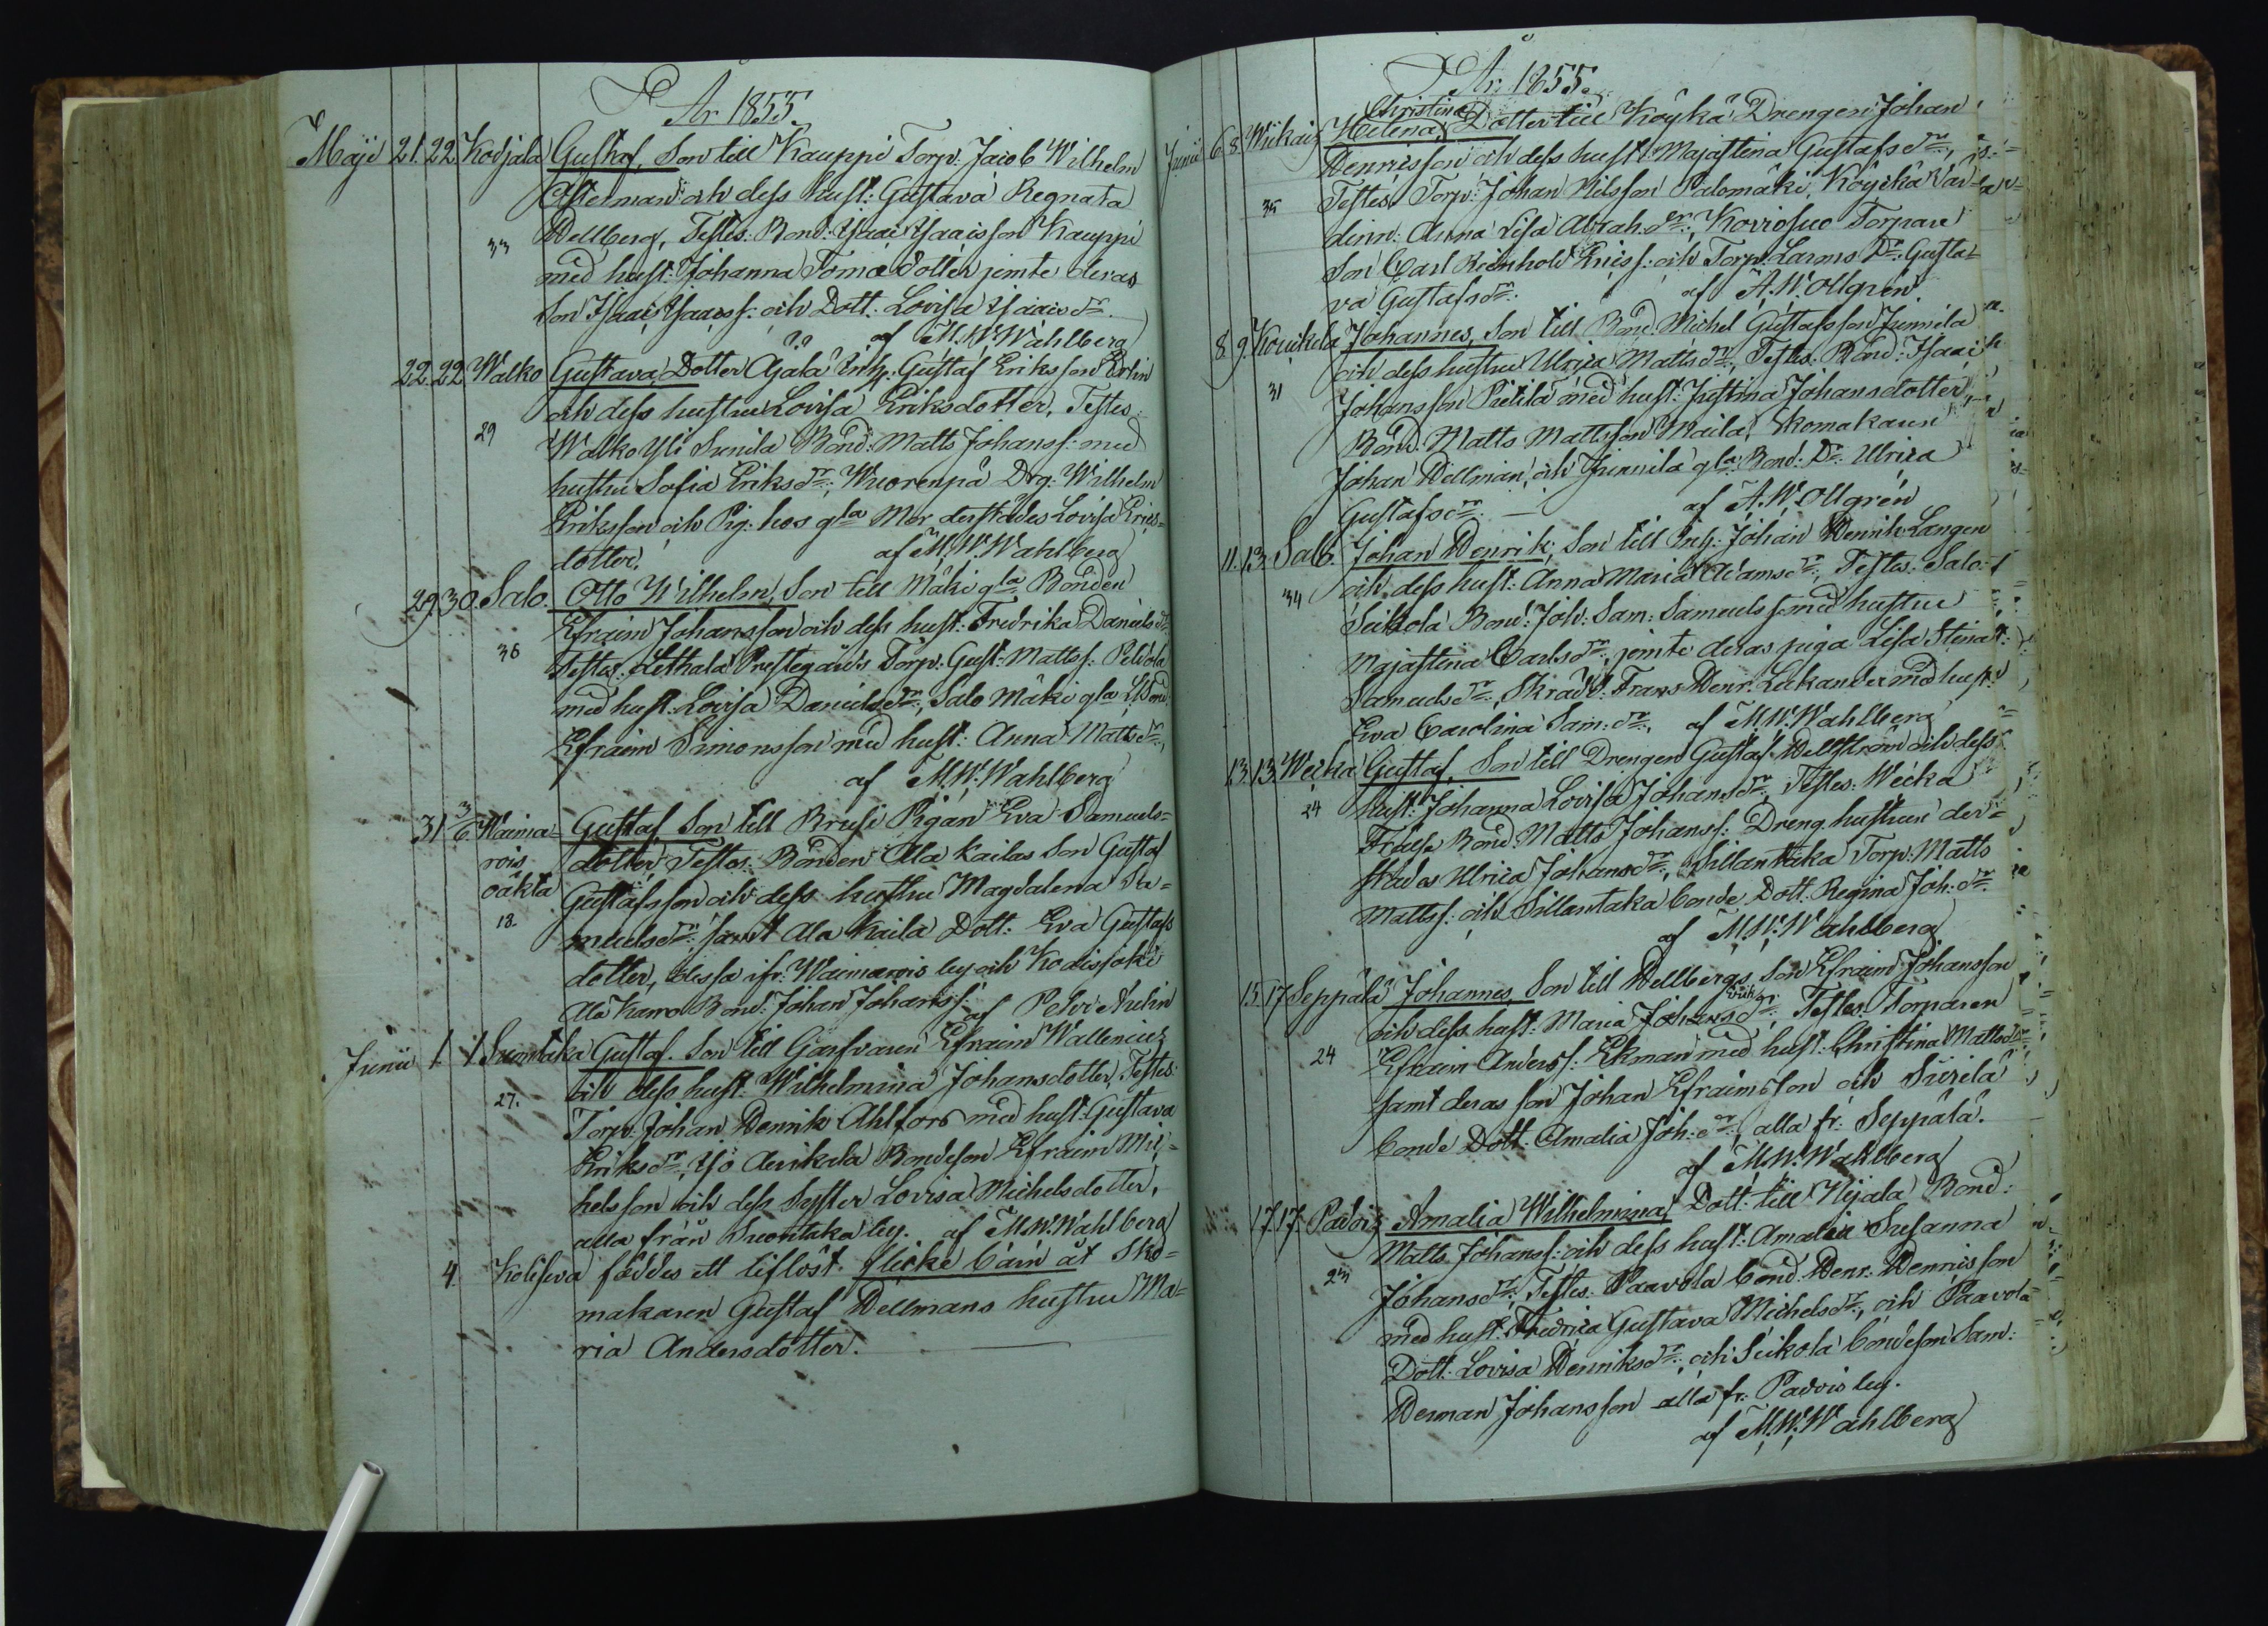 År 1855.
Maji 21. 22. Kodjala Gustaf, Son till Kauppi Torp: Jacob Wilhelm
Österman och dess hust: Gustava Regnata
33 Hellberg, Testes: Bond: Isaac Isaacsson Kauppi
med hust: Johanna Tomædotter jemte deras
Son Isaac Isaacss: och Dott: Lovisa Isaacs dr.
af M.W. Wahlberg
22. 22. Walko Gustava, Dotter Ajala Inh: Gustaf Eriksson Erlin
och dess hustru Lovisa Eriksdotter, Testes:
29 Walko Yli Sunila Bond: Matts Johanss: med
hustru Sofia Eriks dr:, Wuorenpä Drg: Wilhelm
Eriksson och Pig: hos gla Mor derstädes Lovisa Erics=
dotter. af M.W. Wahlberg
29. 30. Salo. Otto Wilhelm, Son till Mäki gla Bonden
Efraim Johansson och dess hust: Fredrika Daniels dr:
36 Testes: Letthala Prestegårds Torp: Gust: Mattss: Peldola
med hust: Lovisa Daniels dr:, Salo Mäki gla Bond:
Efraim Simonsson med hust: Anna Matts dr:,
af M.W. Wahlberg
31 3/6 Waima=
rois
oäkta
18. Gustaf Son till Krusi Pigan Eva Samuels=
dotter, Testes: Bonden Ala Kailas Son Gustaf
Gustafsson och dess hustru Magdalena Sa=
muels dr: samt Ala Kaila Dott: Eva Gustafs
dotter, dessa ifr: Waimarois by och Kodisjoki
Ala Karro Bond: Johan Johanss: af Petri Aulin
Junii 1. 1 Suontaka Gustaf. Son till Garfvaren Efraim Wallenius
och dess hust: Wilhelmina Johansdotter, Testes:
27. Torp: Johan Henrik Ahlfors med hust: Gustava
Eriks dr, Iso Aerikala Bondeson Efraim Mic=
helsson och dess Syster Lovisa Michelsdotter,
alla från Suontaka by. af M.W. Wahlberg
4. Koliseva föddes ett liflöst flicke barn åt Sko=
makaren Gustaf Hellmans hustru Ma=
ria Andersdotter.
År 1855.
Christina
Junii 6. 8. Wiikais Helena, Dotter till Köykä Drengen Johan
Henricsson och dess hust: Majastina Gustafs dr:,
35 Testes: Torp: Johan Nilsson Palomäki, Köykä Vär=
dinn: Anna Lisa Abrah: dr:, Korriosuo Torpare
Son Carl Reinhold Ericss: och Torp: Larms Dr: Gusta=
va Gustafs dr: af A.W. Ollgrén
8 9. Koukela Johannes, Son till Bond: Michel Gustafsson Junnila
och dess hustru Ulrica Matts dr:, Testes: Bond: Isaac
31 Johansson Pietilä med hust: Justina Johansdotter,
Bond: Matts Mattsson Maila, Skomakaren
Johan Hellman, och Junnila gla Bond: Dr: Ulrica
Gustafs dr: af A.W. Ollgrén
11. 13. Salo. Johan Henrik, Son till Inh: Johan Henrik Langen
34 och dess hust: Anna Maria Adams dr:, Testes: Salo
Seikola Bond: Joh: Sam: Samuelss: med hustru
Majastina Carls dr:, jemte deras piga Lisa Stina
Samuels dr:, Skrädd: Frans Henr: Lukander med hust:
Eva Carolina Sam: dr:, af M.W. Wahlberg
13. 13. Wecka Gustaf, Son till Drengen Gustaf Hellström och dess
24 hust: Johanna Lovisa Johans dr:, Testes: Wecka
Bond: Matts Johanss: Dreng hustrun der=
städes Ulrica Johans dr:, Sillantaka Torp: Matts
Mattss: och Sillantaka bonde Dott: Regina Joh: dr:
af M.W. Wahlberg
15. 17. Seppälä Johannes, Son till Hellbergs Son Efraim Johansson
och dess hust: Maria Johans dr:, Testes: Torparen
24 Efraim Anderss: Ekman med hust: Christina Matts dr:
samt deras son Johan Efraimsson och Siirilä
bonde Dott: Amalia Joh: dr:, alla fr: Seppälä.
af M.W. Wahlberg
17. 17. Padois Amalia Wilhelmina, Dott: till Nijala Bond:
Matts Johanss: och dess hust: Amalia Susanna
23 Johans dr:, Testes: Paavola bond: Henr: Henricsson
med hust: Fredrica Gustava Michels dr:, och Paavola
Dott: Lovisa Henriks dr:, och Seikola bondeson Sam:
Herman Johansson alla fr: Padois by.
af M.W. Wahlberg